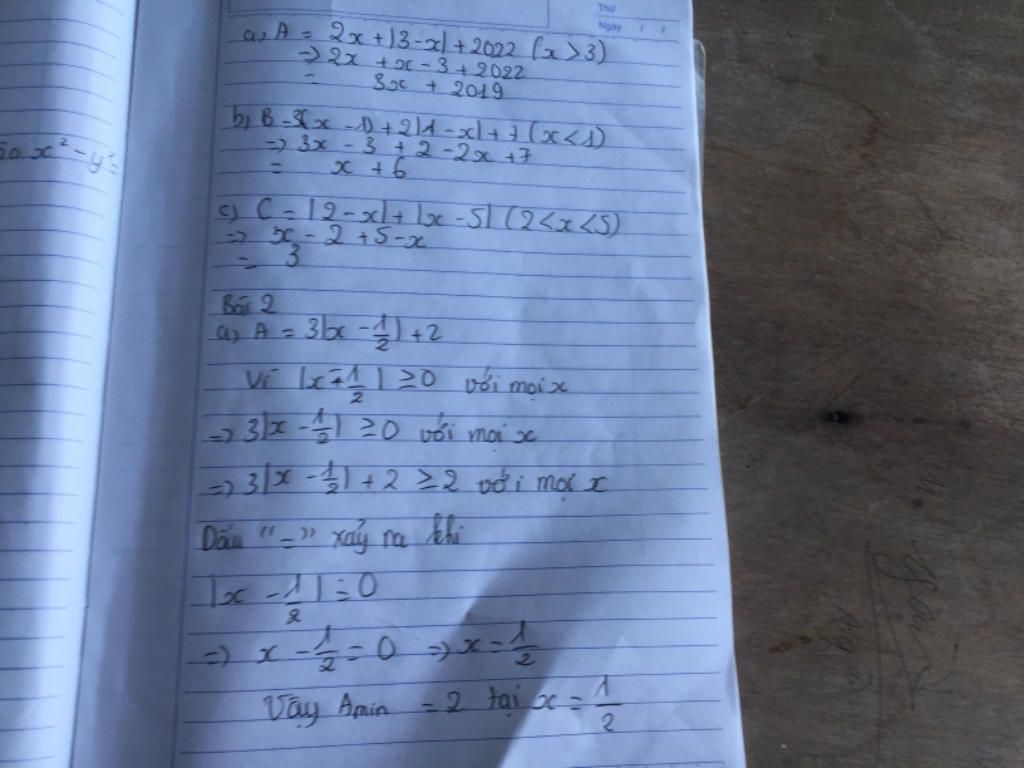 Thứ
Ngày / /
ão x² - y² =
a) A = 2x + |3 - x| + 2022 (x > 3)
=> 2x + x - 3 + 2022
= 3x + 2019
b) B = 3(x - 1) + 2|1 - x| + 7 (x < 1)
=> 3x - 3 + 2 - 2x + 7
= x + 6
c) C = |2 - x| + |x - 5| (2 < x < 5)
=> x - 2 + 5 - x
= 3
Bài 2
a) A = 3|x - 1/2| + 2
Vì |x - 1/2| ≥ 0 với mọi x
=> 3|x - 1/2| ≥ 0 với mọi x
=> 3|x - 1/2| + 2 ≥ 2 với mọi x
Dấu "=" xảy ra khi
|x - 1/2| = 0
=> x - 1/2 = 0 => x = 1/2
Vậy Amin = 2 tại x = 1/2